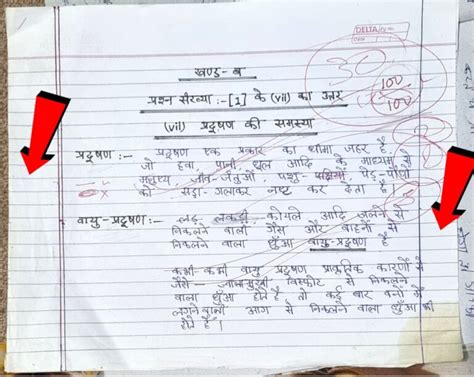 DELTA
30
खण्ड-ब
100
100
प्रश्न संख्या :-[1] के (vii) का उत्तर
(vii) प्रदूषण की समस्या
प्रदूषण :- प्रदूषण एक प्रकार का धीमा जहर है,
जो हवा, पानी, धूल आदि के माध्यम से
मनुष्य, जीव-जंतुओं, पशु-पक्षियों, पेड़-पौधों
को सड़ा-गलाकर नष्ट कर देता है।
वायु-प्रदूषण :- लकड़ी, कोयले आदि जलने से
निकलने वाली गैस और वाहनों से
निकलने वाला धुँआ वायु-प्रदूषण है
कभी-कभी वायु प्रदूषण प्राकृतिक कारणों से
जैसे ज्वालामुखी विस्फोट से निकलने
वाला धुँआ होते हैं तो कई बार वनों में
लगने वाली आग से निकलने वाला धुँआ भी
होते हैं।